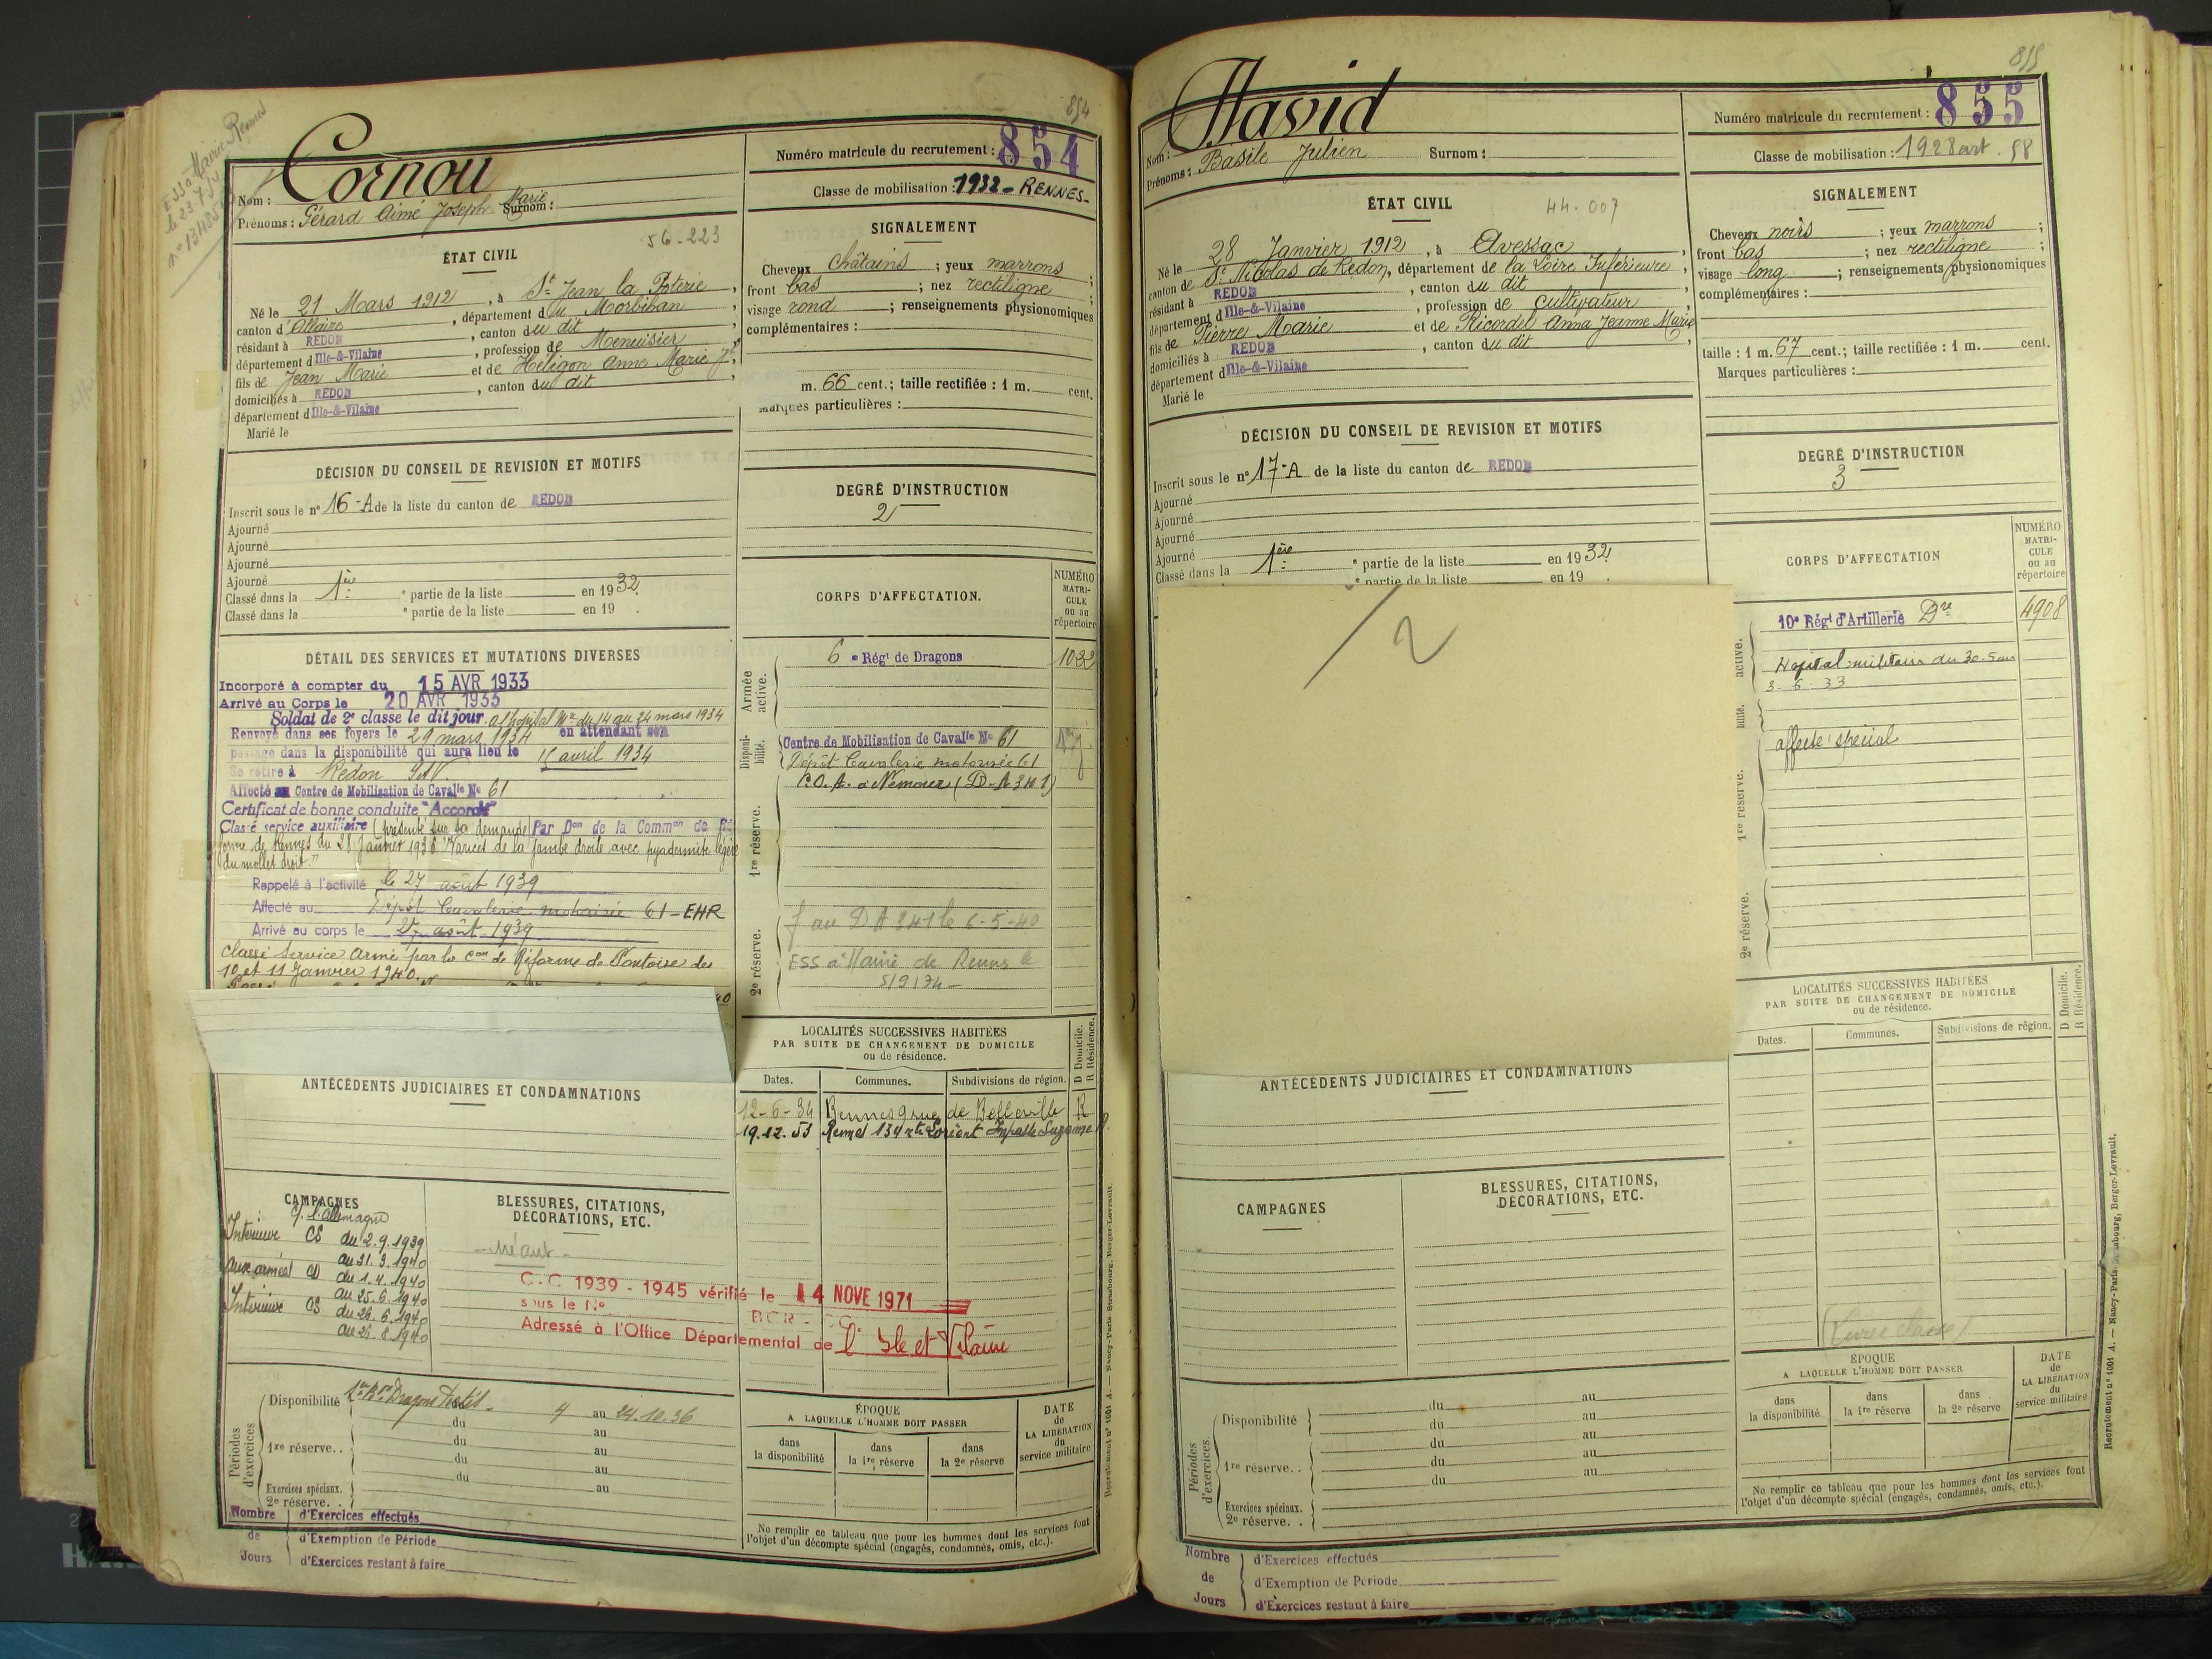 854
ESS à Mairie Rennes
le 23.7.5
Cornou
Nom :
Prénoms : Gérard Aimé Joseph Marie Surnom :
56-223
Numéro matricule du recrutement : 854
Classe de mobilisation : 1932 - RENNES -
ÉTAT CIVIL
Né le 21 Mars 1912, à St Jean la Poterie,
canton d'Allaire, département du Morbihan,
résidant à REDON, canton du dit,
département d'Ille-&-Vilaine, profession de Menuisier
fils de Jean Marie et de Héligon Anne Marie
domiciliés à REDON, canton du dit,
département d'Ille-&-Vilaine
Marié le
SIGNALEMENT
Cheveux châtains ; yeux marrons ;
front bas ; nez rectiligne ;
visage rond ; renseignements physionomiques
complémentaires :
m. 66 cent. ; taille rectifiée : 1 m. cent.
Marques particulières :
DÉCISION DU CONSEIL DE REVISION ET MOTIFS
Inscrit sous le n° 16-A de la liste du canton de REDON
Ajourné
Ajourné
Ajourné
Ajourné
Classé dans la 1ère partie de la liste en 1932.
Classé dans la ° partie de la liste en 19 .
DEGRÉ D'INSTRUCTION
2
DÉTAIL DES SERVICES ET MUTATIONS DIVERSES
Incorporé à compter du 15 AVR 1933
Arrivé au Corps le 20 AVR 1933
Soldat de 2e classe le dit jour. a l'hopital Mre du 14 au 24 mars 1934
Renvoyé dans ses foyers le 29 mars 1934 en attendant son
passage dans la disponibilité qui aura lieu le 15 avril 1934
Se retire à Redon I&V.
Affecté au Centre de Mobilisation de Cavalie No 61
Certificat de bonne conduite "Accordé"
Classé service auxiliaire (présenté sur sa demande) Par Don de la Common de Ré
forme de Rennes du 28 Janvier 1938 "Varices de la jambe droite avec pyodermite légère
du mollet droit."
Rappelé à l'activité le 27 août 1939
Affecté au Dépôt Cavalerie motorisée 61 - EHR
Arrivé au corps le 27 août 1939
Classé Service Armé par la Con de Réforme de Pontoise des
10 et 11 Janvier 1940.
CORPS D'AFFECTATION.
NUMÉRO MATRI-CULE ou au répertoire
Armée active.
6e Régt de Dragons 1022
Disponibilité.
Centre de Mobilisation de Cavalie No 61
Dépôt Cavalerie motorisée 61
1re réserve.
C.O.A. à Nemours (D.A 341)
2e réserve.
f au DA 341 le 6-5-40
ESS à Mairie de Rennes le
5/9/74 -
LOCALITÉS SUCCESSIVES HABITÉES
PAR SUITE DE CHANGEMENT DE DOMICILE
ou de résidence.
D Domicile. R Résidence.
Dates. Communes. Subdivisions de région.
12-6-34 Rennes 9 rue de Belleville R
19.12.53 Rennes 134 rte Lorient Impasse Suzanne R.
ANTÉCÉDENTS JUDICIAIRES ET CONDAMNATIONS
CAMPAGNES
c/ l'Allemagne
Intérieur CS du 2.9.1939
au 31.3.1940
aux armées CD du 1.4.1940
au 25.6.1940
Intérieur CS du 26.6.1940
au 26.8.1940
BLESSURES, CITATIONS,
DÉCORATIONS, ETC.
- Néant -
C.C. 1939 - 1945 vérifié le 14 NOVE 1971
sous le No
Adressé à l'Office Départemental de l'Ille et Vilaine
Périodes d'exercices.
Disponibilité 4 au 24.10.36
du au
1re réserve. . du au
du au
du au
Exercices spéciaux. au
2e réserve. .
Nombre de Jours
d'Exercices effectués
d'Exemption de Période
d'Exercices restant à faire
ÉPOQUE
A LAQUELLE L'HOMME DOIT PASSER
dans la disponibilité
dans la 1re réserve
dans la 2e réserve
DATE de LA LIBÉRATION du service militaire
Ne remplir ce tableau que pour les hommes dont les services font
l'objet d'un décompte spécial (engagés, condamnés, omis, etc.).
Recrutement n° 1001 A. — Nancy-Paris-Strasbourg, Berger-Levrault.
855
David
Nom :
Prénoms : Basile Julien Surnom :
Numéro matricule du recrutement : 855
Classe de mobilisation : 1928 art. 58
ÉTAT CIVIL
44-007
Né le 28 Janvier 1912, à Avessac,
canton de St Nicolas de Redon, département de la Loire Inférieure,
résidant à REDON, canton du dit
département d'Ille-&-Vilaine, profession de cultivateur
fils de Pierre Marie et de Ricordel Anna Jeanne Marie
domiciliés à REDON, canton du dit
département d'Ille-&-Vilaine
Marié le
SIGNALEMENT
Cheveux noirs ; yeux marrons ;
front bas ; nez rectiligne ;
visage long ; renseignements physionomiques
complémentaires :
taille : 1 m. 67 cent. ; taille rectifiée : 1 m. cent.
Marques particulières :
DÉCISION DU CONSEIL DE REVISION ET MOTIFS
Inscrit sous le n° 17-A de la liste du canton de REDON
Ajourné
Ajourné
Ajourné
Ajourné
Classé dans la 1ère partie de la liste en 1932.
° partie de la liste en 19 .
2
DEGRÉ D'INSTRUCTION
3
CORPS D'AFFECTATION
NUMÉRO MATRI-CULE ou au répertoire
active.
10e Régt d'Artillerie Dre 4908
Hopital militaire du 30-5 au
3-6-33
bilité.
affecté spécial
1re réserve.
2e réserve.
LOCALITÉS SUCCESSIVES HABITÉES
PAR SUITE DE CHANGEMENT DE DOMICILE
ou de résidence.
D Domicile. R Résidence.
Dates. Communes. Subdivisions de région.
ANTÉCÉDENTS JUDICIAIRES ET CONDAMNATIONS
CAMPAGNES
BLESSURES, CITATIONS,
DÉCORATIONS, ETC.
Périodes d'exercices.
Disponibilité du au
du au
1re réserve. . du au
du au
du au
Exercices spéciaux.
2e réserve. .
Nombre de Jours
d'Exercices effectués
d'Exemption de Période
d'Exercices restant à faire
ÉPOQUE
A LAQUELLE L'HOMME DOIT PASSER
dans la disponibilité
dans la 1re réserve
dans la 2e réserve
DATE de LA LIBÉRATION du service militaire
Ne remplir ce tableau que pour les hommes dont les services font
l'objet d'un décompte spécial (engagés, condamnés, omis, etc.).
Recrutement n° 1001 A. — Nancy-Paris-Strasbourg, Berger-Levrault.